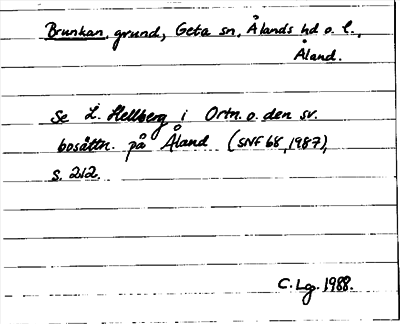 Brunkan, grund, Geta sn, Ålands hd o. l.,
Åland.
Se L. Hellberg i Ortn. o. den sv.
bosättn. på Åland (SNF 68, 1987),
s. 212.
C. Lg. 1988.